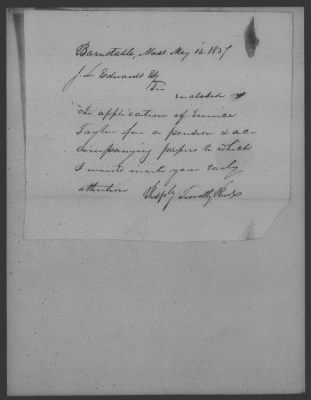 Barnstable, Mass. May 12. 1837
J. L. Edwards Esq
Sir
enclosed is
the application of Eunice
Taylor for a pension & ac-
companying papers to which
I wants invite your early
attention Resply Timothy Reed